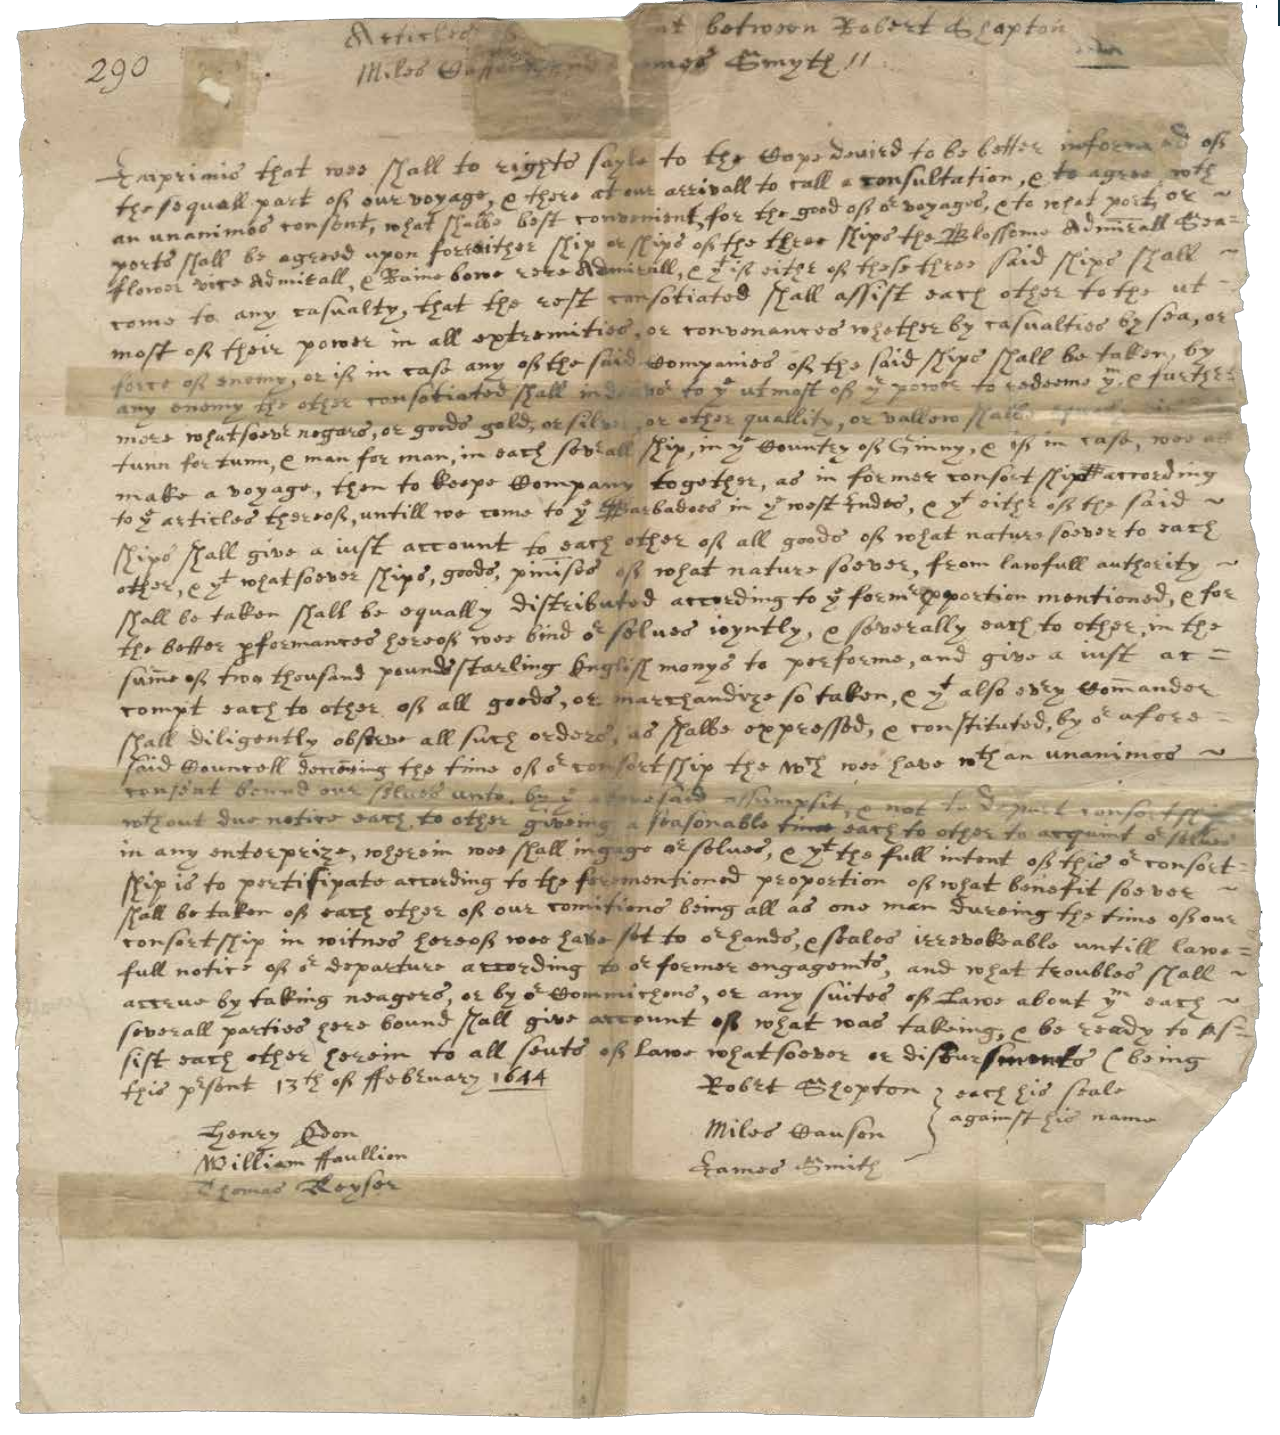 290
Articles between Robert Shopton
Miles James Smyth //
Imprimis that wee shall to rights sayle to the Cape devird to be better informed of
the sequall part of our voyage, & there at our arrivall to call a consultation, & to agree wth
an unanimos consent, what shalbe best convenient, for the good of or voyages, & to what port, or ~
ports shall be agreed upon for either ship or ships of the three ships the Blossome Admirall Sea=
flower vice Admirall, & Rainebowe rere Admirall, & yt if either of these three said ships shall ~
come to any casualty, that the rest consotiated shall assist each other to the ut =
most of their power in all extremities, or convenances whether by casualties by sea, or
force of enemy, or if in case any of the said Companies of the said ships shall be taken, by
any enemy the other consotiated shall indeavor to ye utmost of yr power to redeeme ym. & further=
more whatsoevr negars, or goods gold, or silver, or other quallity, or vallew shalbe
tunn for tunn, & man for man, in each sevrall ship, in ye Country of Ginny, & if in case, wee
make a voyage, then to keepe Company together, as in former consortship according
to ye articles thereof, untill we come to ye Barbadoes in ye west Indes, & yt either of the said ~
ships shall give a iust account to each other of all goods of what nature soever to each
other, & yt whatsoever ships, goods, pinises of what nature soever, from lawfull authority ~
shall be taken shall be equally distributed according to ye formr proportion mentioned, & for
the better pformances hereof wee bind or selves ioyntly, & severally each to other, in the
sume of two thousand pounds starling English monys to performe, and give a iust ac =
compt each to other of all goods, or marchandize so taken, & yt also evry Comander
shall diligently observe all such orders, as shalbe expressed, & constituted, by or afore =
said Councell the time of or consortship the wch wee have wth an unanimos ~
consent bound our selves unto, by ye aforesaid assumpsit, & not to depart consortship
wthout due notice each to other giveing a seasonable time each to other to acquint or selves
in any enterprize, wherein wee shall ingage or selves, & yt the full intent of this or consort=
ship is to pertisipate according to the forementioned proportion of what benefit soever ~
shall be taken of each other of our comitions being all as one man dureing the time of our
consortship in witnes hereof wee have set to or hands, & seales irrevokeable untill lawe=
full notice of or departure according to or former engagemts, and what troubles shall ~
accrue by taking neagers, or by or Commichons, or any suites of Lawe about ym each ~
severall parties here bound shall give account of what was takeing, & be ready to As=
sist each other herein to all seuts of lawe whatsoever or disbursments (being
this prsent 13th of ffebruary 1644
Robert Shopton } each his seale
against his name
Miles Causon
James Smith
Henry
William ffaullion
Thomas Keyser